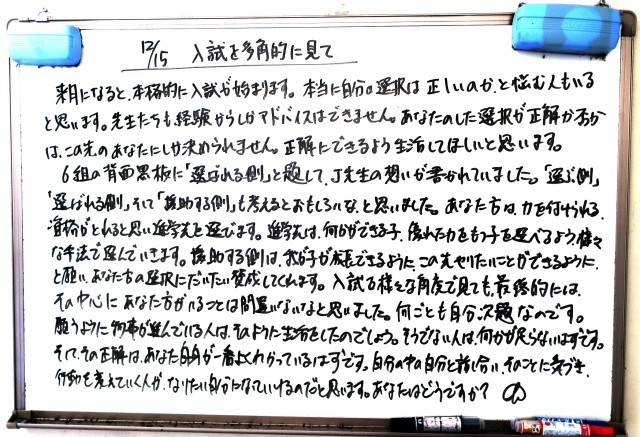 12/15 入試を多角的に見て
来月になると、本格的に入試が始まります。本当に自分の選択は正しいのか、と悩む人もいる
と思います。先生たちも、経験からしかアドバイスはできません。あなたのした選択が正解か否か
は、この先のあなたにしか決められません。正解にできるよう生活してほしいと思います。
6組の背面黒板に「選ばれる側」と題して、J先生の想いが書かれていました。「選ぶ側」
「選ばれる側」、そして「援助する側」も考えるとおもしろいな、と思いました。あなた方は、力を付けられる、
資格がとれると思い進学先を選びます。進学先は、何かができる子、優れた力をもつ子を選べるよう様々
な手法で選んでいきます。援助する側は、我が子が成長できるように、この先やりたいことができるように、
と願い、あなた方の選択にだいたい賛成してくれます。入試を様々な角度で見ても、最終的には、
その中心にあなた方がいることは間違いないなと思いました。何ごとも自分次第なのです。
願うように物事が進んでいる人は、そのように生活をしたのでしょう。そうでない人は、何かが足らないはずです。
そして、その正解は、あなた自身が一番よくわかっているはずです。自分の中の自分と話し合い、そのことに気づき、
行動を考えていく人が、なりたい自分になっていけるのだと思います。あなたはどうですか？